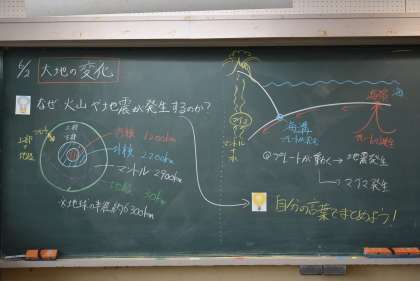 6/2 大地の変化
なぜ 火山や地震が発生するのか?
プレート
上部
+
地殻
上部
下部
内核 1200km
外核 2200km
マントル 2900km
地殻 30km
※地球の半径 約6300km
マグマ
マントル
水
海溝
プレートが沈む
海嶺
海
プレートの誕生
プレートが動く→地震発生
マグマ発生
自分の言葉でまとめよう!